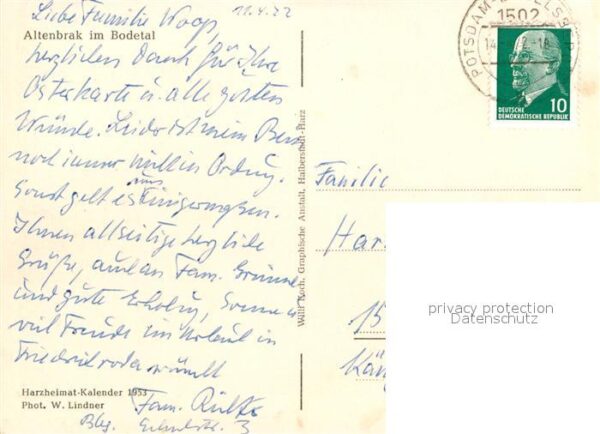 11.4.72
Liebe Familie
Altenbrak im Bodetal
herzlichen Dank für Ihre
Osterkarte u. alle guten
Wünsche. Leider ist mein Bein
noch immer nicht in Ordng.
Sonst geht es uns Einigermaßen.
Ihnen allseitige herzliche
Grüße, auch an Fam.
und gute Erholg, Sonne u
viel Freude im Urlaub in
Friedrichroda wünscht
Fam.
Bbg. 3
Harzheimat-Kalender 1953
Phot. W. Lindner
Willi Koch, Graphische Anstalt, Halberstadt-Harz
POTSDAM-B
1502
14
-18
10
DEUTSCHE
DEMOKRATISCHE REPUBLIK
Familie
Har
15
privacy protection
Datenschutz